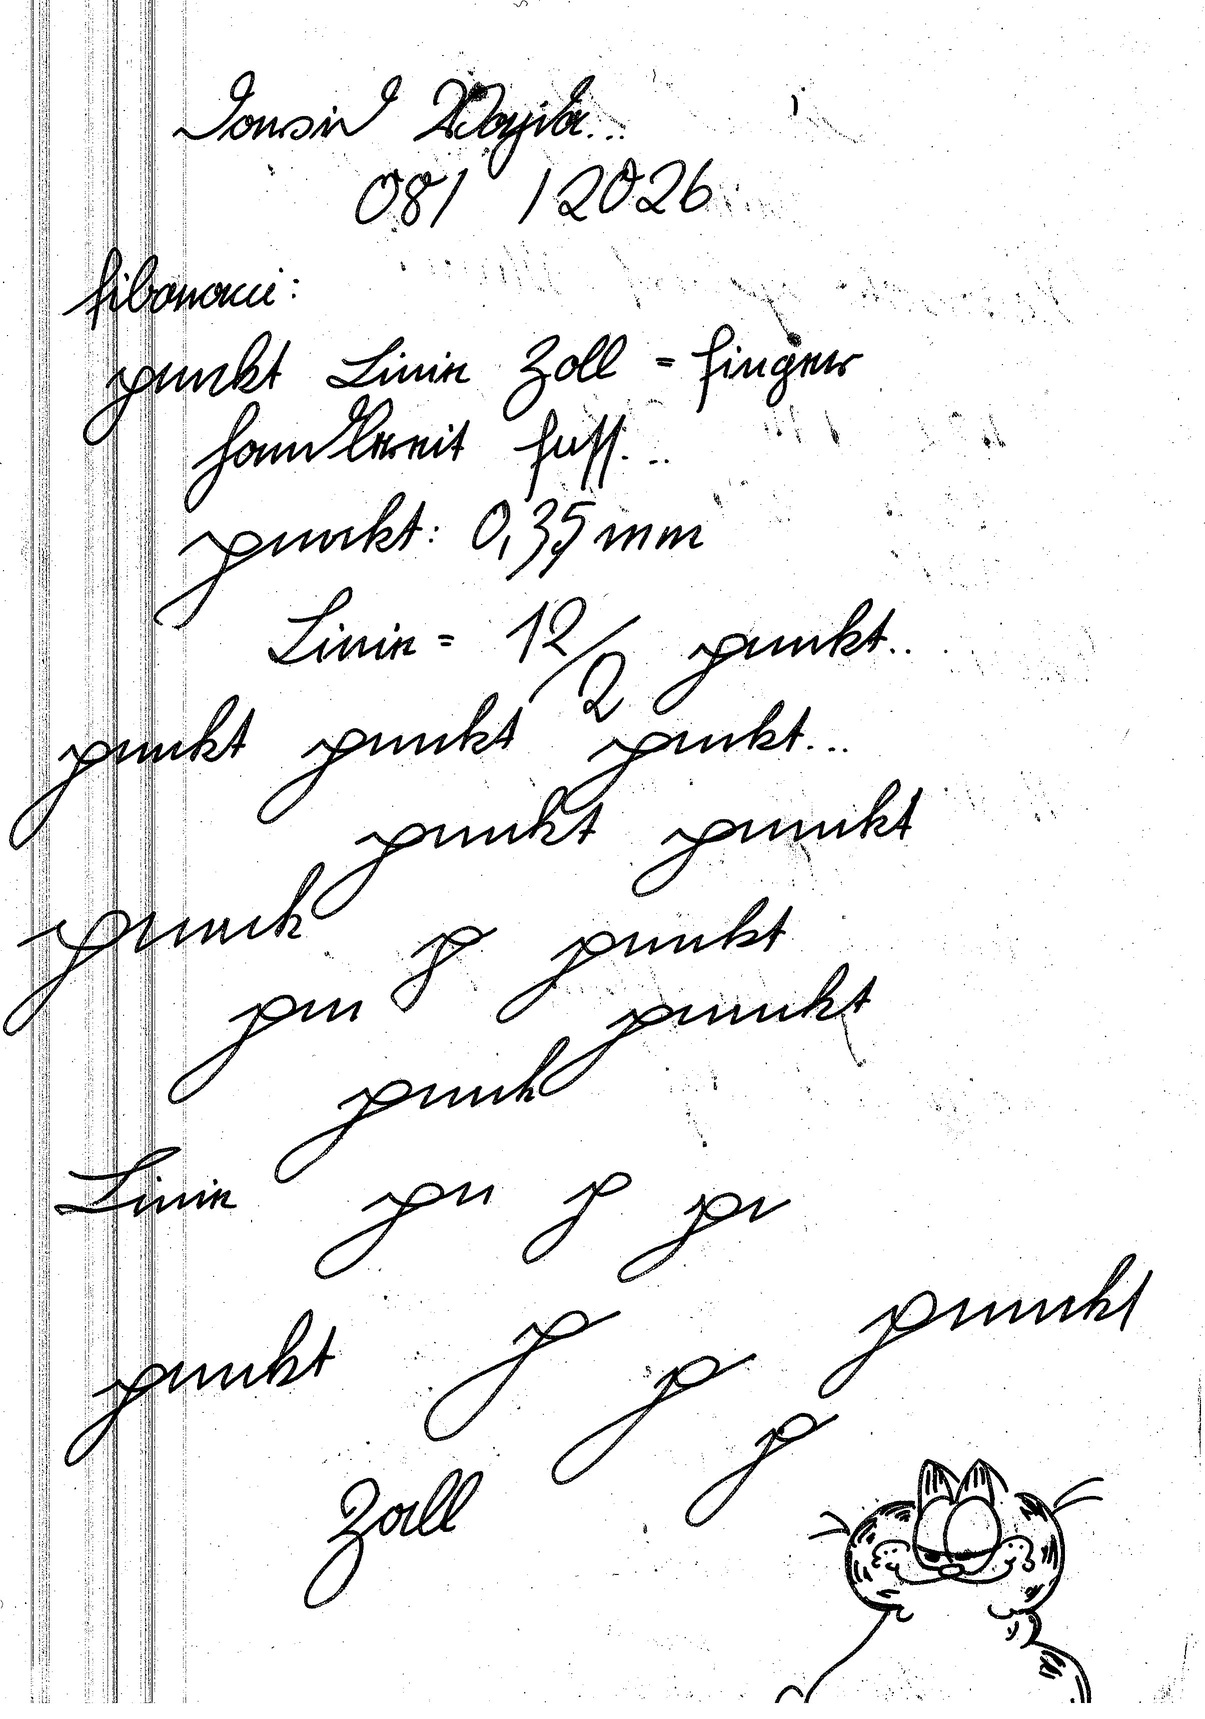 081 / 2026
fibonacci:
punkt Linie Zoll = finger
handbreit fuss...
punkt: 0,35 mm
Linie = 12/2 punkt..
punkt punkt punkt...
punkt punkt
punk p punkt
pun punkt
punk
Linie pu p pu
punkt p p punkt
p
Zoll